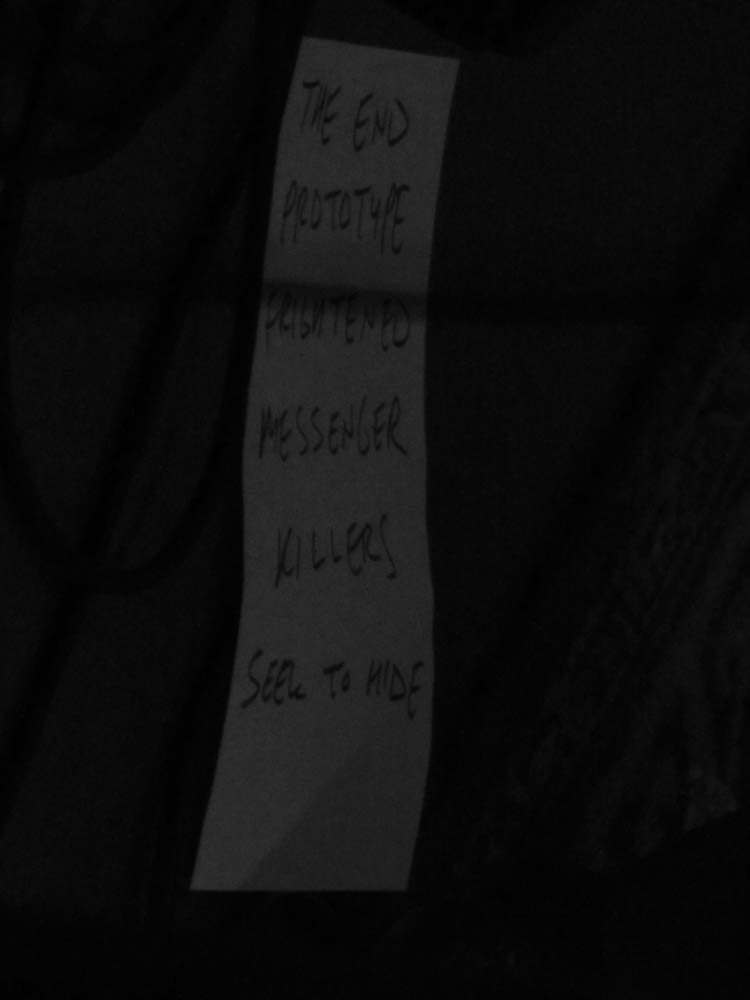 THE END
PROTOTYPE
FRIGHTENED
MESSENGER
KILLERS
SEEK TO HIDE